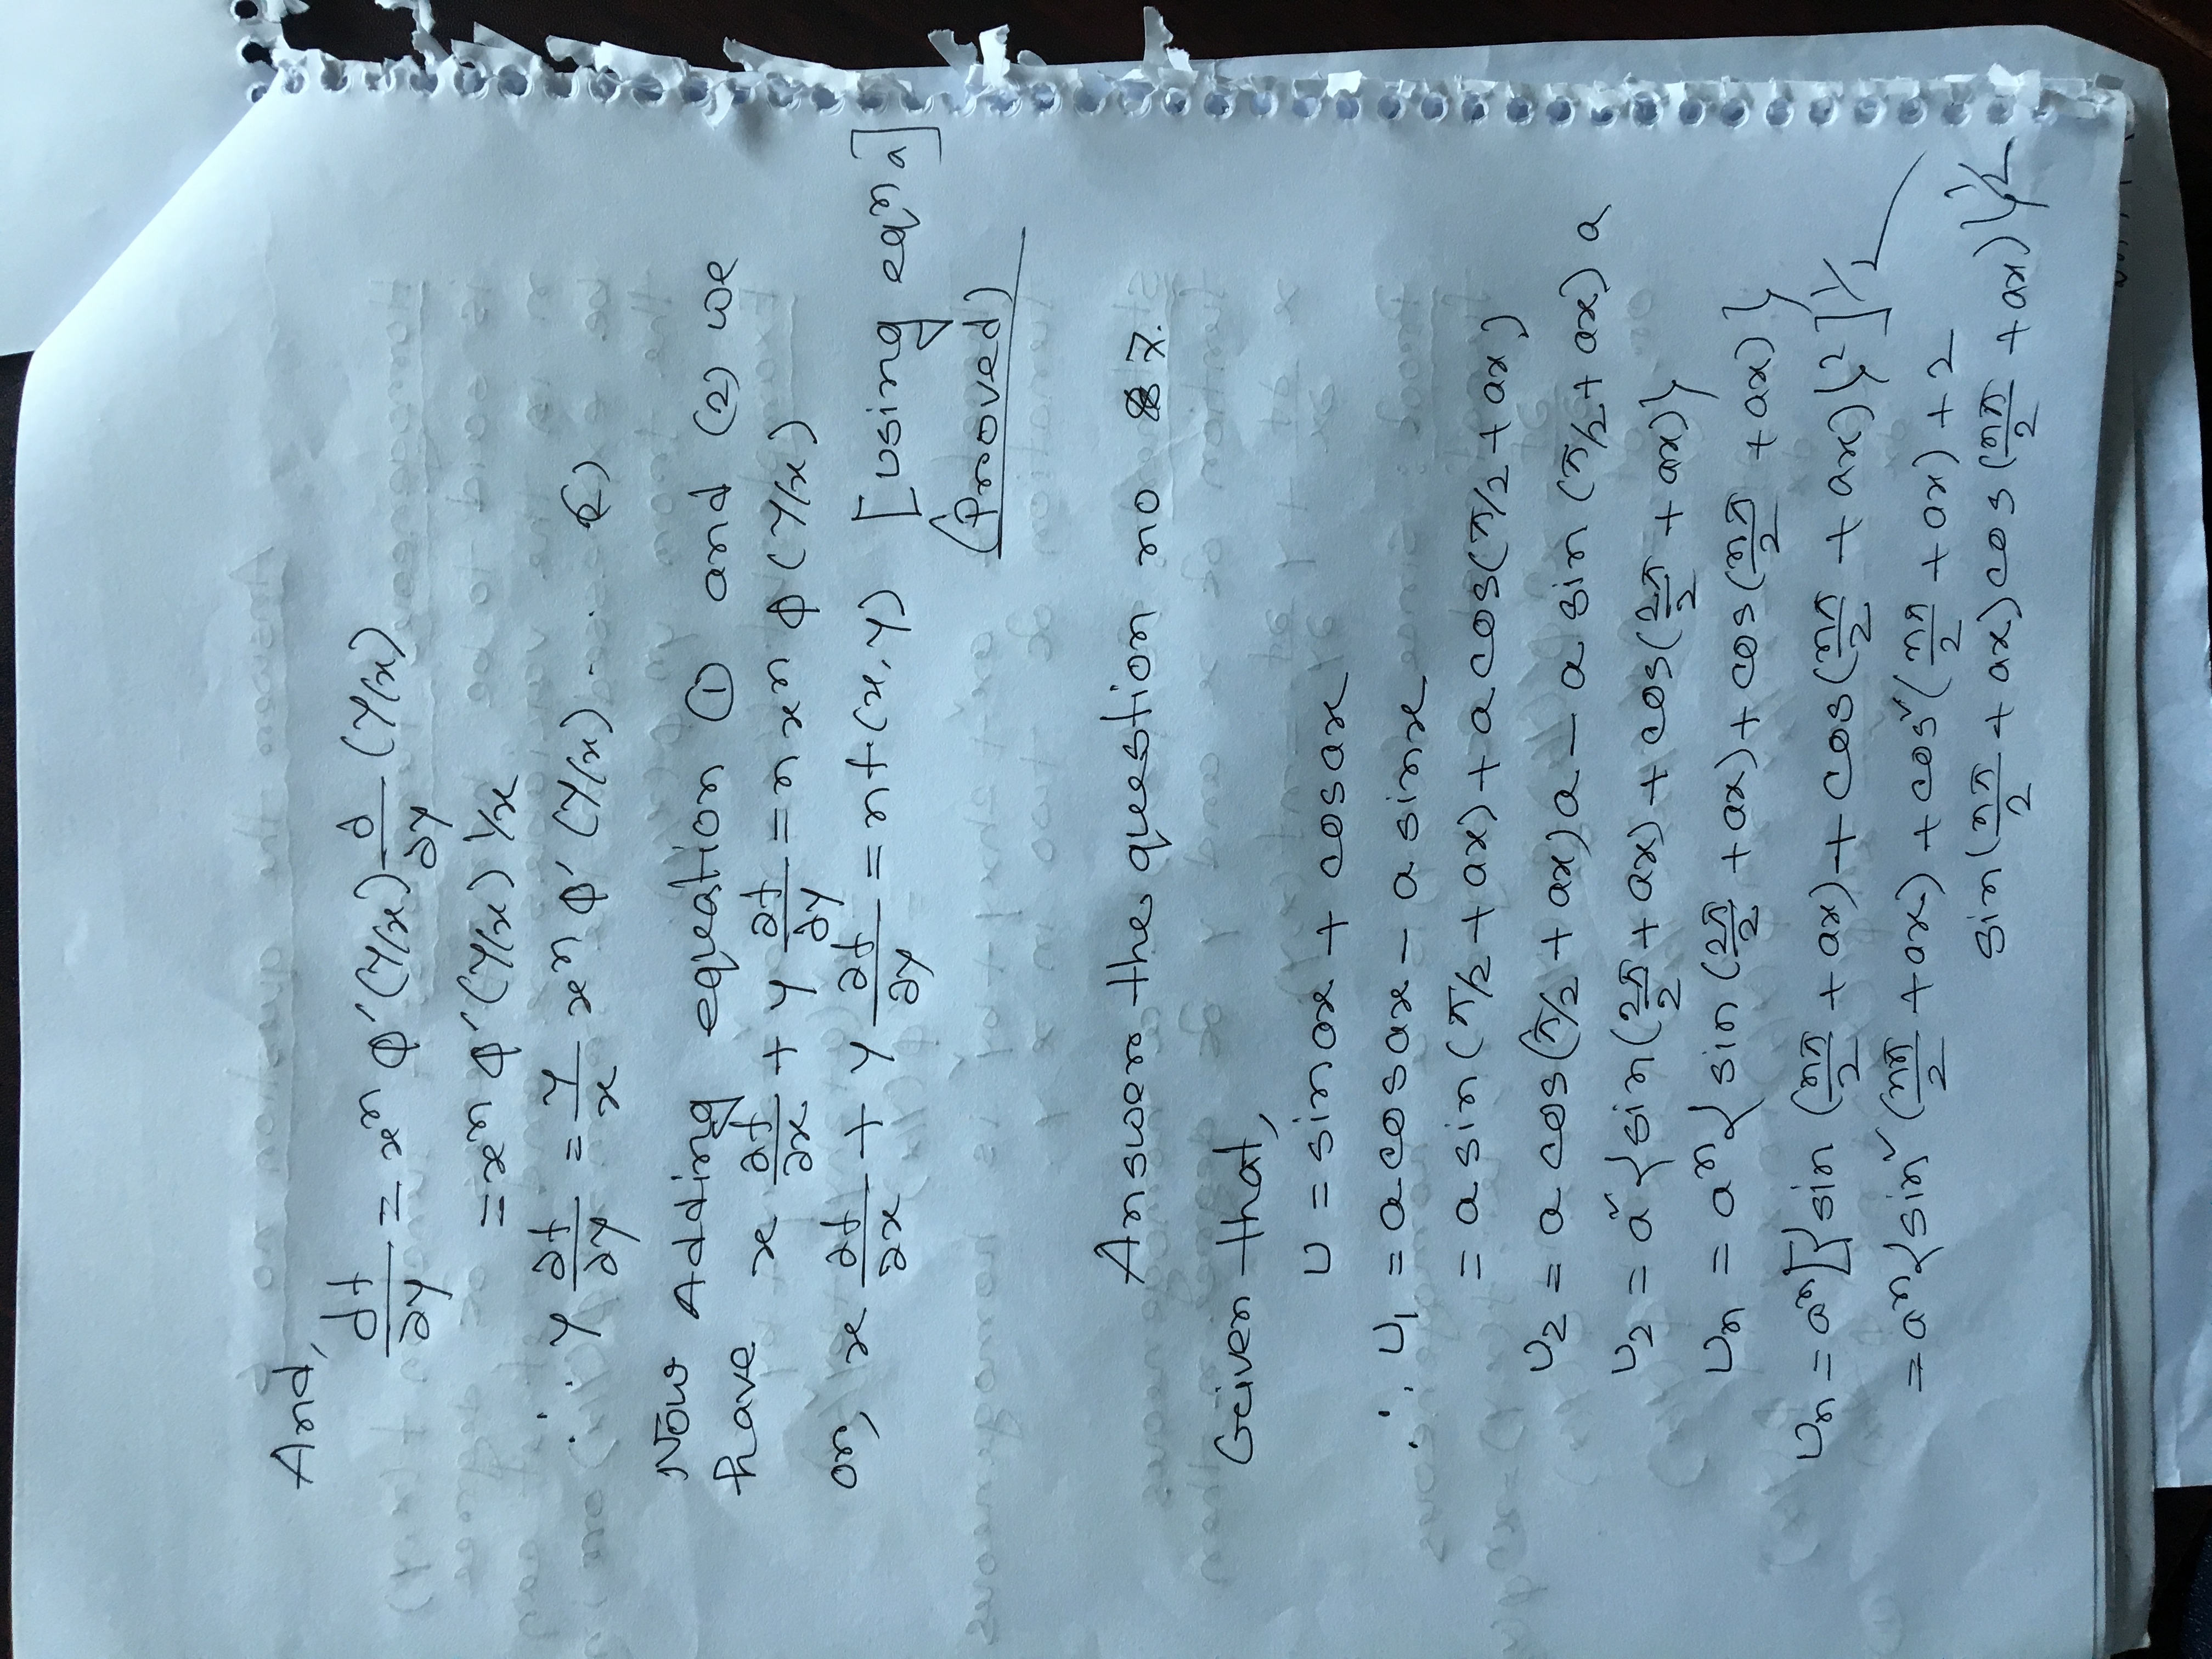 And,
df/∂y = xⁿ φ′(y/x) ∂/∂y (y/x)
= xⁿ φ′(y/x) 1/x
∴ y ∂f/∂y = y/x xⁿ φ′ (y/x) - .. (2)
Now Adding equation ① and (2) we
have x ∂f/∂x + y ∂f/∂y = n xⁿ φ (y/x)
or, x ∂f/∂x + y ∂f/∂y = nf(x,y) [using eqⁿ a]
(Proved)
Answer the question no 7.
Given that,
U = sinax + cosax
∴ U₁ = a cosax - a sinx
= a sin(π/2 + ax) + a cos(π/2 + ax)
U₂ = a cos(π/2 + ax) a - a sin (π/2 + ax) a
U₂ = a² {sin(2π/2 + ax) + cos(2π/2 + ax)}
Uₙ = aⁿ { sin (2π/2 + ax) + cos(nπ/2 + ax) }
Uₙ = aⁿ [{sin (nπ/2 + ax) + cos(nπ/2 + ax)}²]^1/2
= aⁿ {sin² (nπ/2 + ax) + cos² (nπ/2 + ax) + 2
sin(nπ/2 + ax) cos (nπ/2 + ax)}^1/2